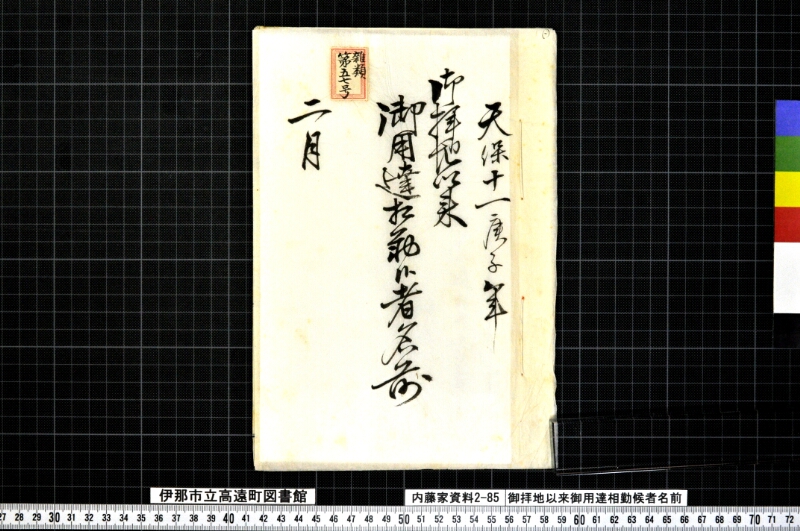 天保十一庚子年
御拝地以来
御用達相勤候者名前
二月
雑類
第五七号
伊那市立高遠町図書館
内藤家資料2-85 御拝地以来御用達相勤候者名前
27 28 29 30 31 32 33 34 35 36 37 38 39 40 41 42 43 44 45 46 47 48 49 50 51 52 53 54 55 56 57 58 59 60 61 62 63 64 65 66 67 68 69 70 71 72